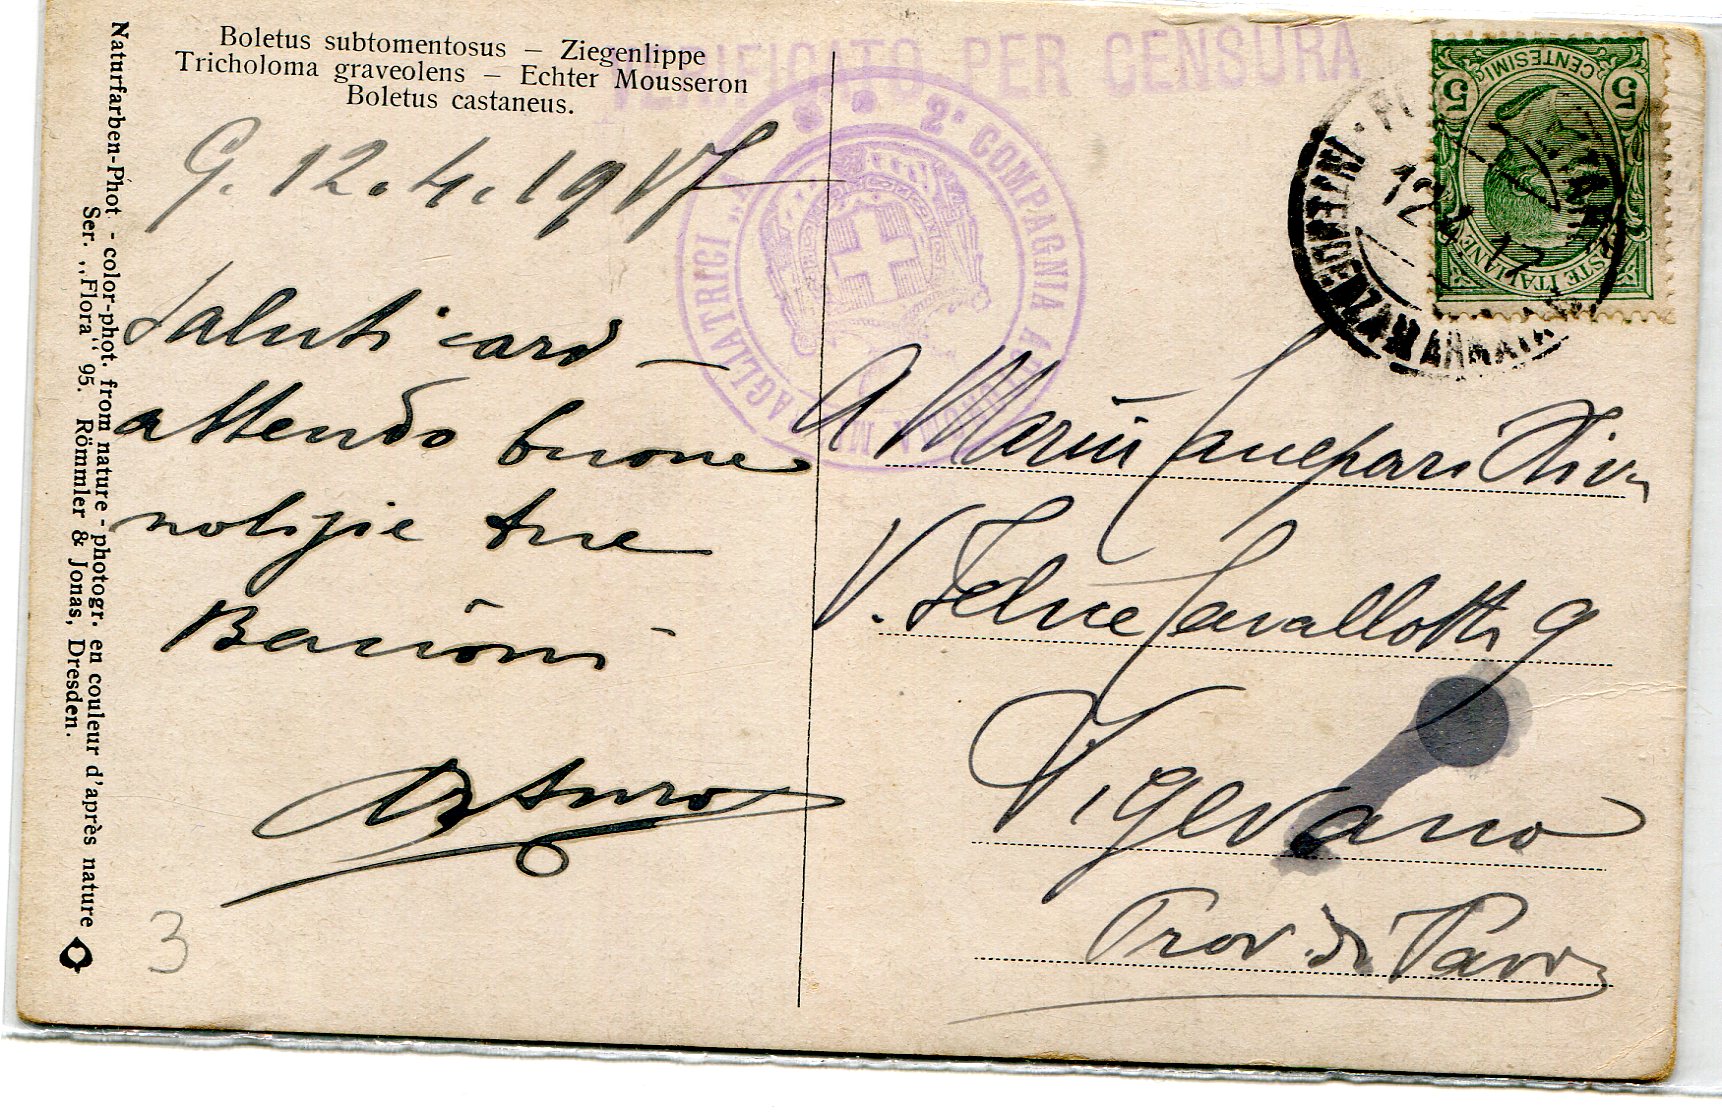 Boletus subtomentosus — Ziegenlippe
Tricholoma graveolens — Echter Mousseron
Boletus castaneus.
VERIFICATO PER CENSURA
2ª COMPAGNIA
MITRAGLIATRICI
CENTESIMI
5 5
POSTE ITALIANE
12
17
G. 12.4.1917
Saluti cari —
attendo buone
notizie tue
Bacioni
Arturo
A Mariù
V. Felice Cavallotti 9
Vigevano
Prov. di Pavia
Naturfarben-Phot - color-phot. from nature - photogr. en couleur d'après nature
Ser. „Flora" 95. Römmler & Jonas, Dresden.
3